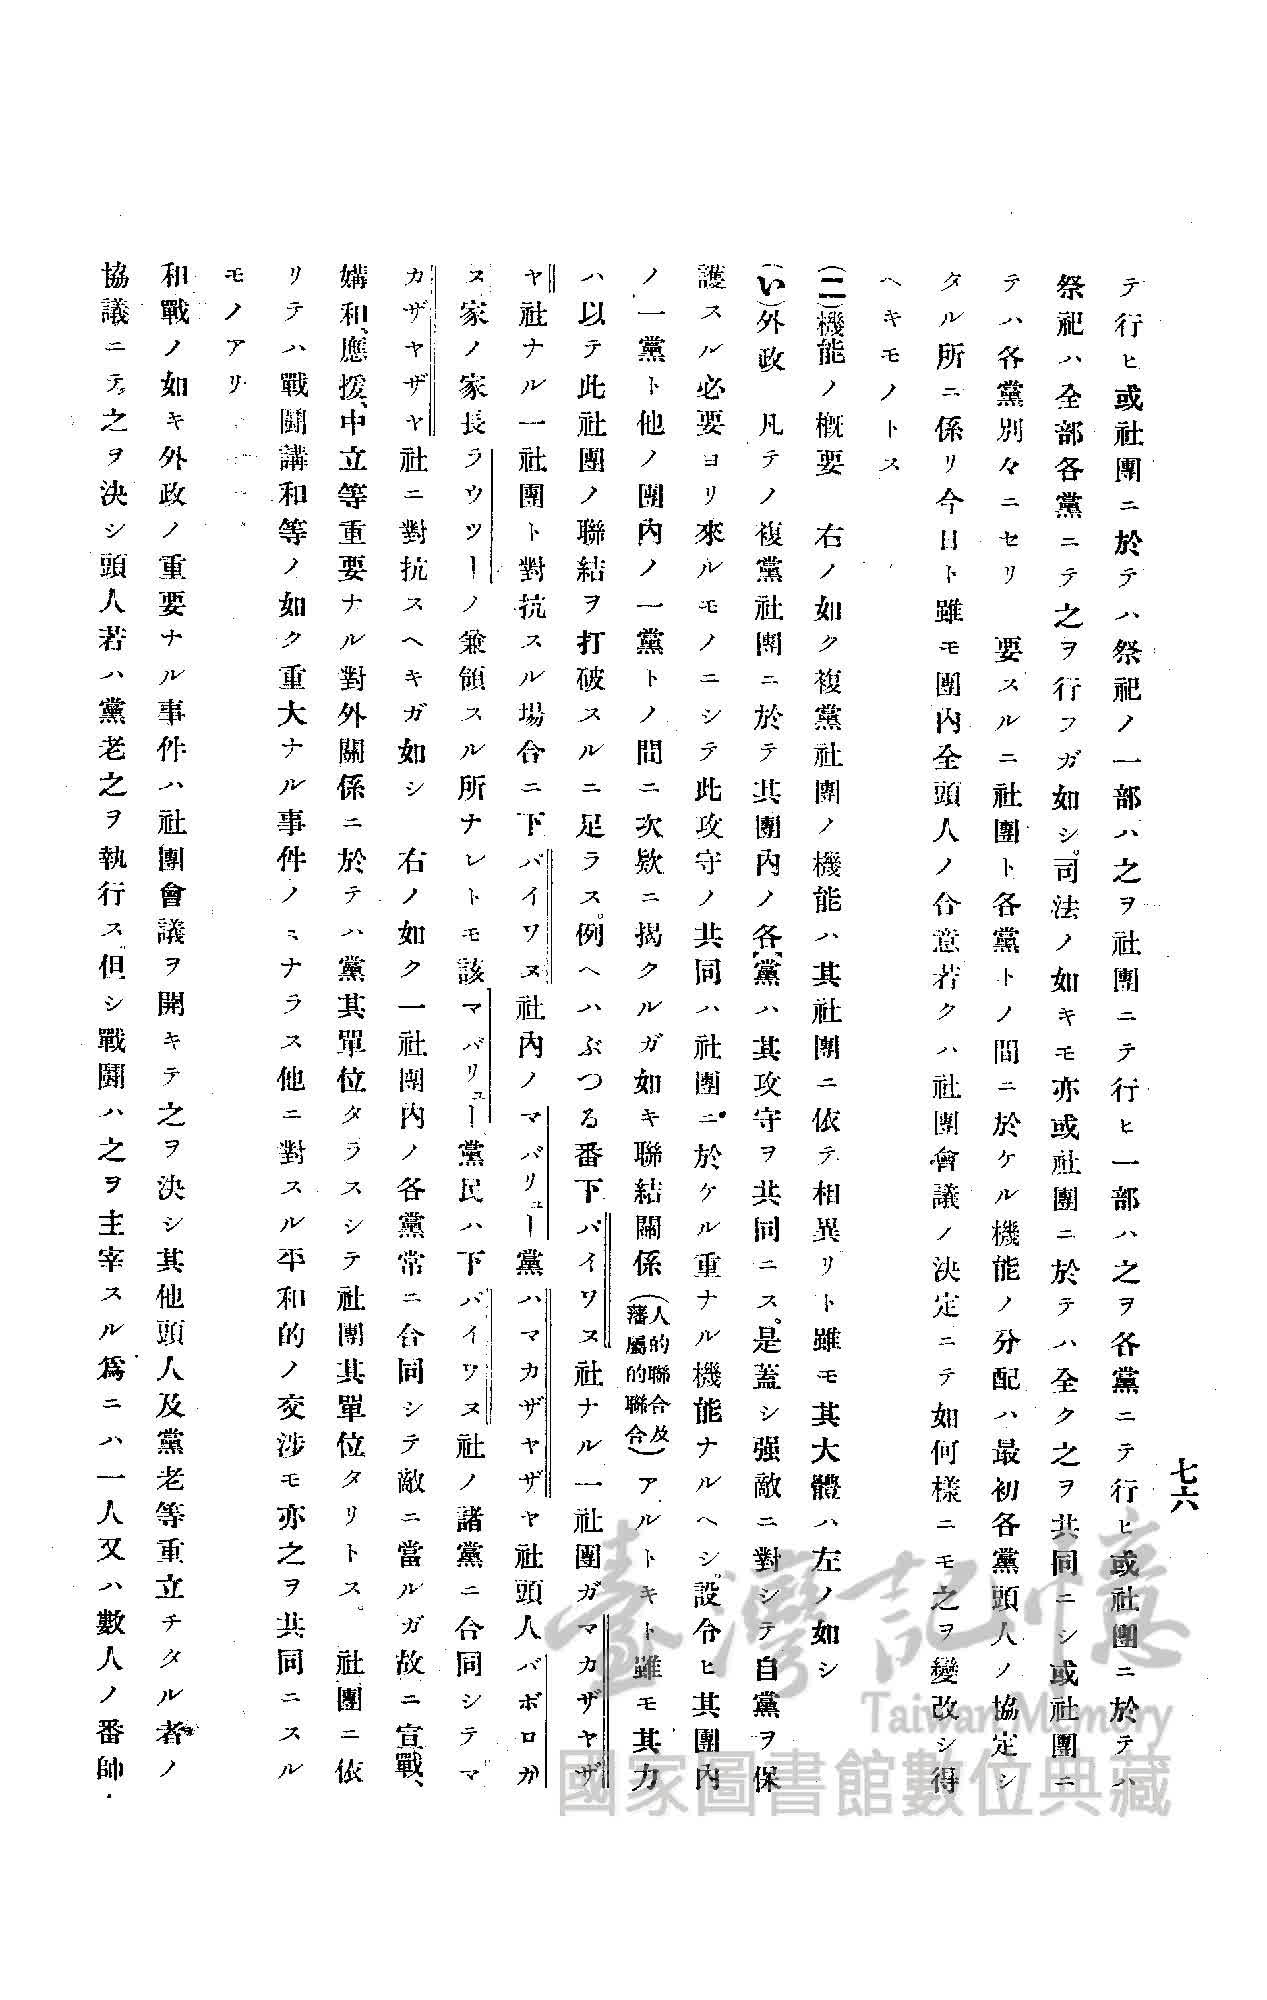 七六
テ行ヒ或社團ニ於テハ祭祀ノ一部ハ之ヲ社團ニテ行ヒ一部ハ之ヲ各黨ニテ行ヒ或社團ニ於テハ
祭祀ハ全部各黨ニテ之ヲ行フガ如シ。司法ノ如キモ亦或社團ニ於テハ全ク之ヲ共同ニシ或社團ニ
テハ各黨別々ニセリ 要スルニ社團ト各黨トノ間ニ於ケル機能ノ分配ハ最初各黨頭人ノ協定シ
タル所ニ係リ今日ト雖モ團内全頭人ノ合意若クハ社團會議ノ決定ニテ如何樣ニモ之ヲ變改シ得
ヘキモノトス
(二)機能ノ概要 右ノ如ク複黨社團ノ機能ハ其社團ニ依テ相異リト雖モ其大體ハ左ノ如シ
(い)外政 凡テノ複黨社團ニ於テ其團内ノ各黨ハ其攻守ヲ共同ニス。是蓋シ强敵ニ對シテ自黨ヲ保
護スル必要ヨリ來ルモノニシテ此攻守ノ共同ハ社團ニ於ケル重ナル機能ナルヘシ。設令ヒ其團内
ノ一黨ト他ノ團内ノ一黨トノ間ニ次欵ニ揭クルガ如キ聯結關係(人的聯合及藩屬的聯合)アルトキト雖モ其力
ハ以テ此社團ノ聯結ヲ打破スルニ足ラス。例ヘハぶつる番下バイワヌ社ナル一社團ガマカザヤザ
ヤ社ナル一社團ト對抗スル場合ニ下バイワヌ社内ノマバリュー黨ハマカザヤザヤ社頭人バボロガ
ヌ家ノ家長ラウツーノ兼領スル所ナレトモ該マバリュー黨民ハ下バイワヌ社ノ諸黨ニ合同シテマ
カザヤザヤ社ニ對抗スヘキガ如シ 右ノ如ク一社團内ノ各黨常ニ合同シテ敵ニ當ルガ故ニ宣戰、
媾和、應援、中立等重要ナル對外關係ニ於テハ黨其單位タラスシテ社團其單位タリトス。 社團ニ依
リテハ戰鬪講和等ノ如ク重大ナル事件ノミナラス他ニ對スル平和的ノ交涉モ亦之ヲ共同ニスル
モノアリ
和戰ノ如キ外政ノ重要ナル事件ハ社團會議ヲ開キテ之ヲ決シ其他頭人及黨老等重立チタル者ノ
協議ニテ之ヲ決シ頭人若ハ黨老之ヲ執行ス。但シ戰鬪ハ之ヲ主宰スル爲ニハ一人又ハ數人ノ番帥
臺灣記憶
Taiwan Memory
國家圖書館數位典藏